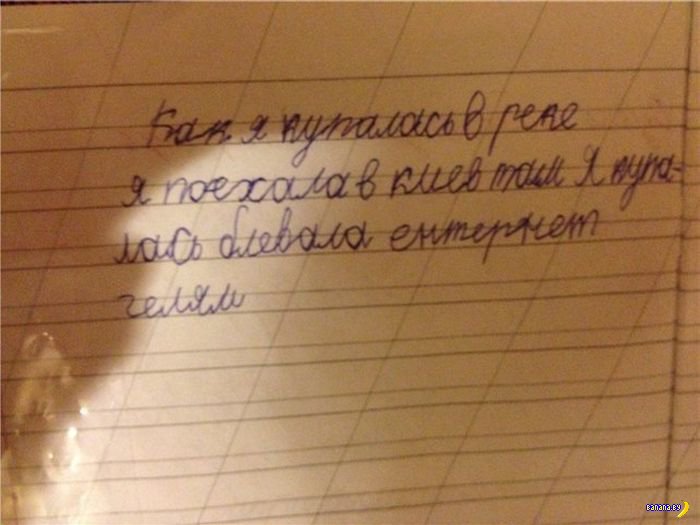 Как я купалась в реке
я поехала в киев там я купа-
лась блевала ентернет
гелям
BANANA.BY